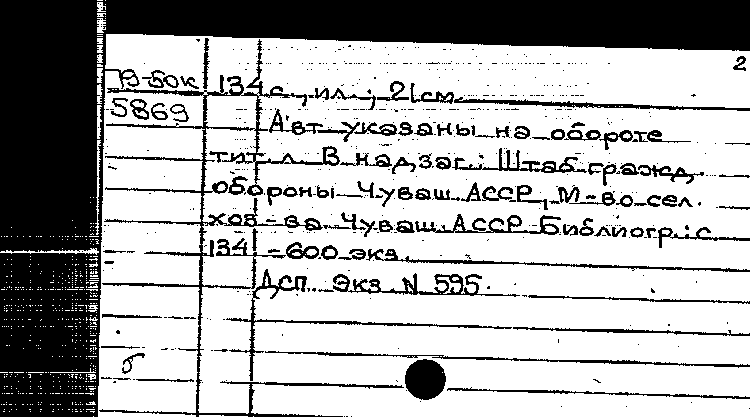 2
79-50к 134 с., ил.; 21 см.
5869 Авт. указаны на обороте
тит. л. В надзаг.: Штаб гражд.
обороны Чуваш. АССР, М-во сел.
хоз-ва Чуваш. АССР. Библиогр.: с.
134 - 600 экз.
Дсп. Экз. N 595.